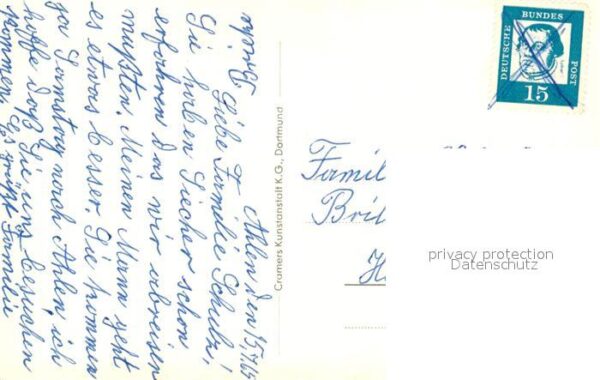 Ahlen den 15.7.65
Liebe Familie Schulz!
Sie haben Siecher schon
erfahren das wir abreisen
mußten. Meinen Mann geht
es etwas besser. Sie kommen
ja Samstag nach Ahlen, ich
hoffe daß Sie uns besuchen
kommen. Es grüßt Familie
Cramers Kunstanstalt K.G., Dortmund
DEUTSCHE BUNDES POST
15
Famil
Bril
H
privacy protection
Datenschutz